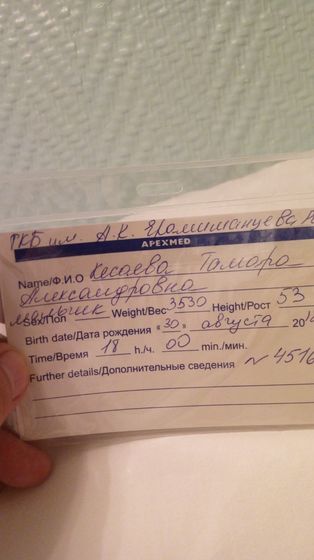 ГКБ им. А.К. Ерамишанцева
APEXMED
Name/Ф.И.О Кесаева Тамара
Александровна
Sex/Пол мальчик Weight/Вес 3530 Height/Рост 53
Birth date/Дата рождения «30» августа 20
Time/Время 18 h./ч. 00 min./мин.
Further details/Дополнительные сведения № 4516